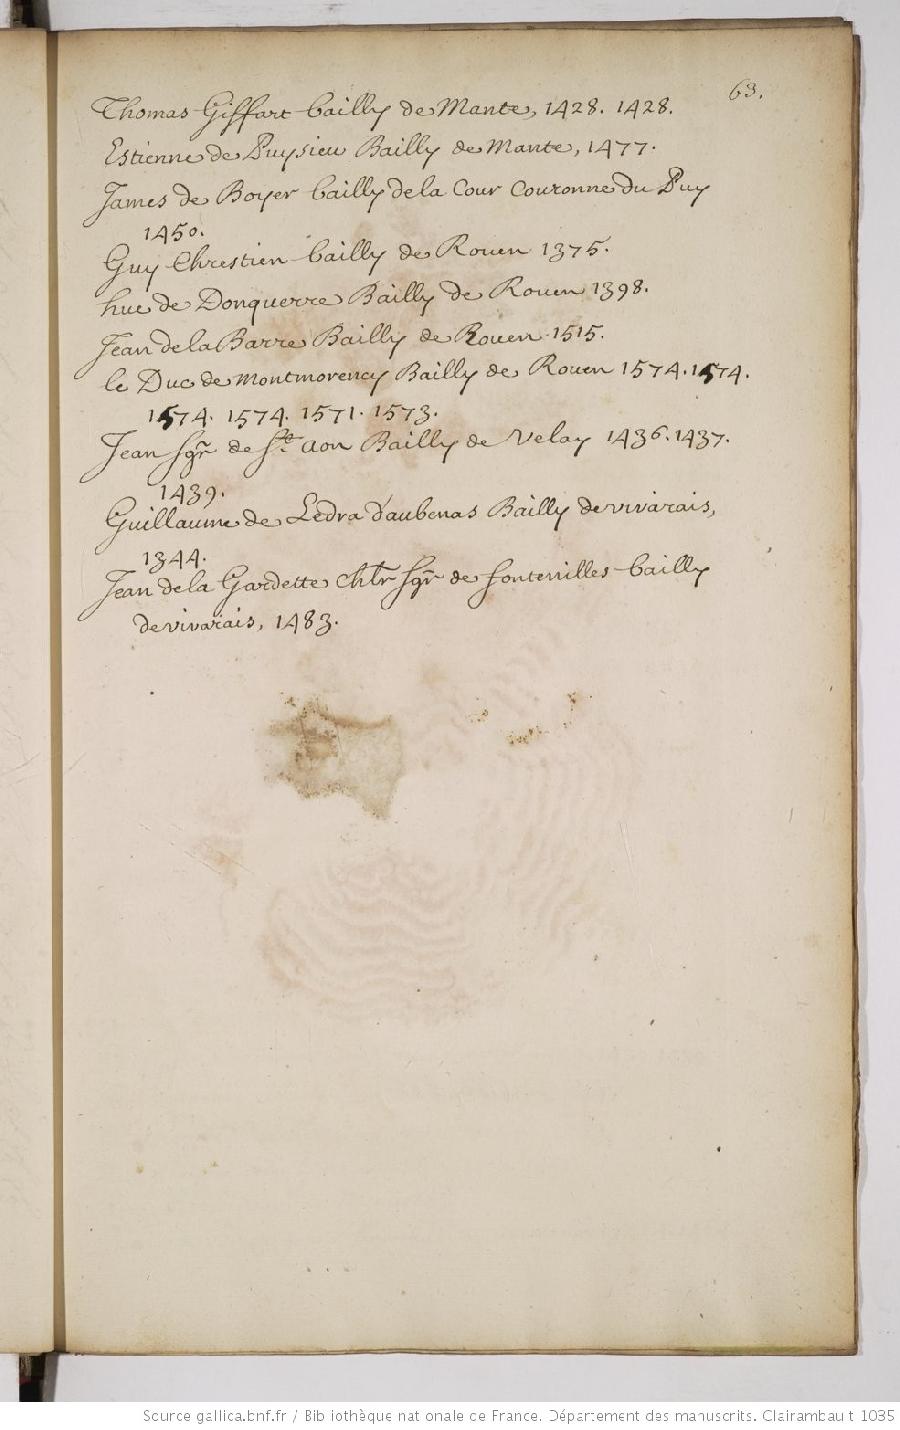 63.
Thomas Giffart bailly de Mante, 1428. 1428.
Estienne de Puysieu Bailly de Mante, 1477.
James de Boyer bailly dela Cour Couronne du Puy
1450.
Guy Chrestien bailly de Rouen 1375.
hue de Donquerre Bailly de Rouen 1398.
Jean dela Barre Bailly de Rouen 1515.
le Duc de montmorency Bailly de Rouen 1574. 1574.
1574. 1574. 1571. 1573.
Jean sgr de St. aon Bailly de Velay 1436. 1437.
1439.
Guillaume de Ledra d'aubenas Bailly de vivarais,
1344.
Jean dela Gardette chlr sgr de fontenilles bailly
de vivarais, 1483.
Source gallica.bnf.fr / Bibliothèque nationale de France. Département des manuscrits. Clairambault 1035